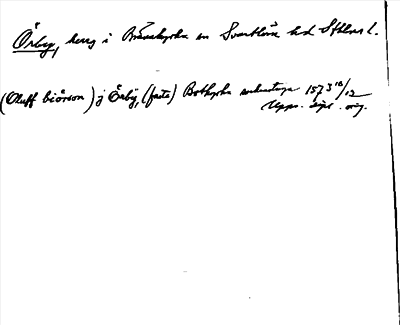 Örby, herrg i Brännkyrka sn Svartlösa hd Sthlms l.
(Oluff biörson) j Örby, (faste) Botkyrka sockenstuga 1573 10/12
Upps. dipl. orig.